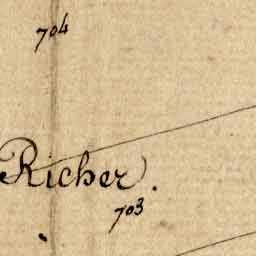 704
Richer.
703